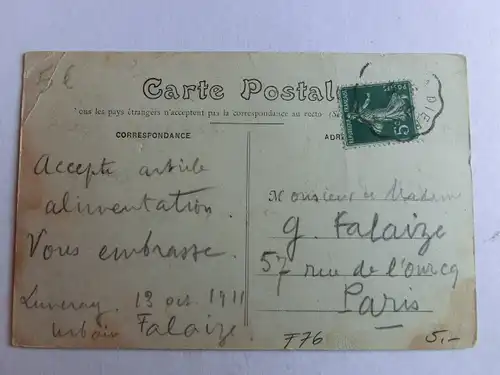 5 €
Carte Postale
Tous les pays étrangers n'acceptent pas la correspondance au recto (Se
CORRESPONDANCE
ADR
5
DIE
Accepte article
alimentation.
Vous embrasse.
Luneray. 13 oct. 1911
Urbain Falaize.
Monsieur et Madame
G. Falaize
57 rue de l'Ourcq
Paris
F76
5.-